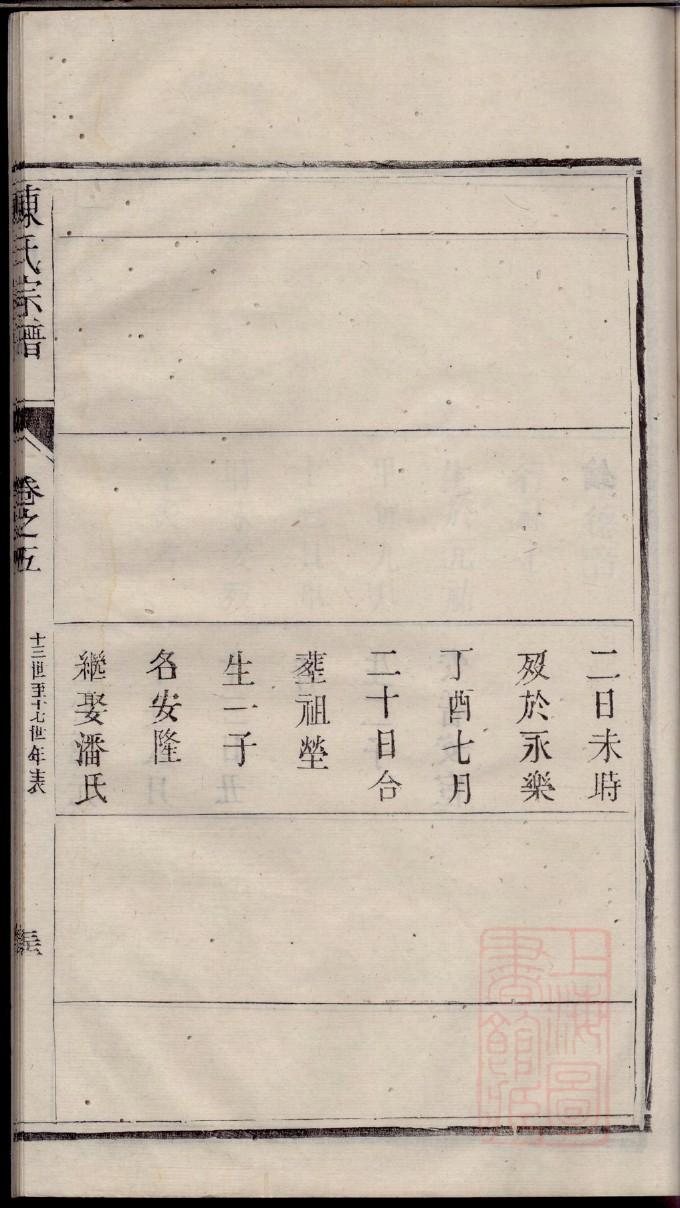 二日未時
歿於永樂
丁酉七月
二十日合
塟祖塋
生一子
名安隆
繼娶潘氏
陳氏宗譜
卷之五
十三世至十七世年表
上海圖
書館藏